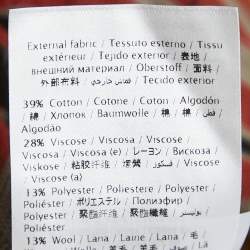 External fabric / Tessuto esterno / Tissu
extérieur / Tejido exterior / 表地 /
внешний материал / Oberstoff / 面料 /
外部布料 / قماش خارجي / Tecido exterior
39% Cotton / Cotone / Coton / Algodón
/ 綿 / Хлопок / Baumwolle / 棉 / 棉 / قطن /
Algodão
28% Viscose / Viscosa / Viscose /
Viscosa / Viscosa (e) / レーヨン / Вискоза
/ Viskose / 粘胶纤维 / 嫘縈 / فسكوز /
Viscose / Viscose (a)
13% Polyester / Poliestere / Polyester /
Poliéster / ポリエステル / Полиэфир /
Polyester / 聚酯纤维 / 聚酯纖維 / بوليستر /
Poliéster
13% Wool / Lana / Laine / Lana / 毛